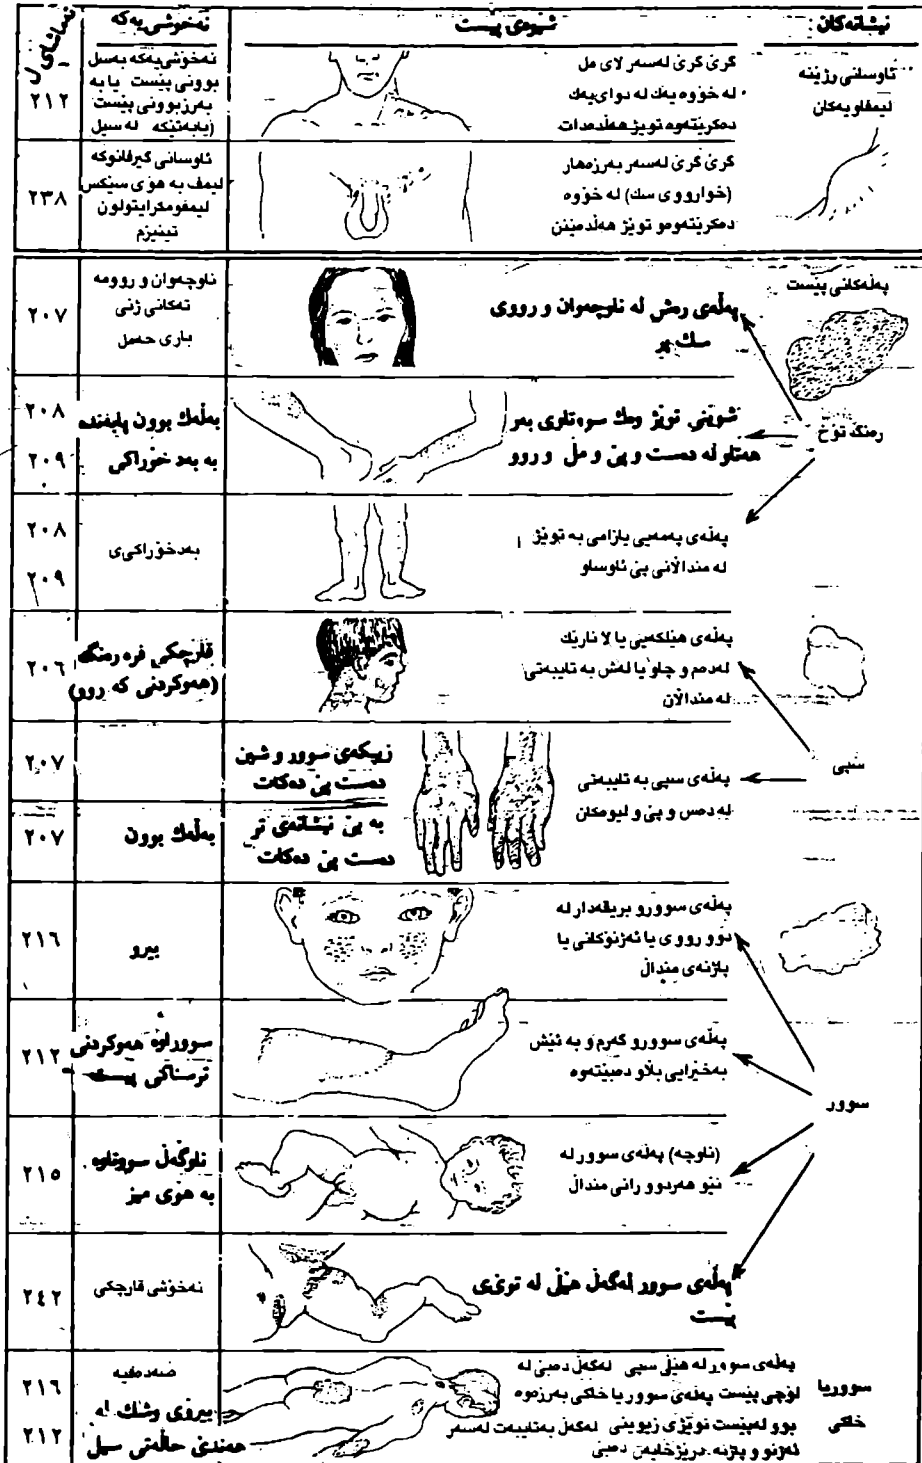 نیشانەکان
شێوەی پێست
نەخۆشی یەکە
تەماشای ل
ئاوسانی رژێنە
لیمفاویەکان
گرێ گرێ لەسەر لای مل
لە خۆوە یەك لە دوای یەك
دەکرێتەوە توێژ هەڵدەدات
نەخۆشی یەکە بەسل
بوونی پێست یا بە
بەرزبوونی پێست
(یابەتیکە لە سیل
٢١٢
گرێ گرێ لەسەر بەرزەهار
(خوارووی سك) لە خۆوە
دەکرێتەوەو توێژ هەڵدەێنن
ئاوسانی گیرفانوکە
لیمف بە هۆی سێکس
لیمفومکراینولون
تینیزم
٢٣٨
پەڵەکانی پێست
رەنگ تۆخ
پەڵەی رەش لە ناوچەوان و رووی
سك پڕ
ناوچەوان و روومە
تەکانی ژنی
باری حەمل
٢٠٧
شوێنی توێژ وەك سوەتاوی بەر
هەتاو لە دەست و پێ و مل و روو
بەڵەك بوون یابەندە
بە بەد خۆراکی
٢٠٨
٢٠٩
پەڵەی پەمەیی یازامی بە توێژ
لە منداڵانی پێ ئاوساو
بەدخۆراکی ی
٢٠٨
٢٠٩
سپی
پەڵەی هێلکەیی یا لا ناڕێك
لەدەم و چاو یا لەش بە تایبەتی
لە منداڵان
قارچکی فرە رەنگە
(هەوکردنی کە روو)
٢٠٦
پەڵەی سپی بە تایبەتی
لە دەس و پێ و لیوەکان
زیپکەی سوور و شین
دەست پێ دەکات
٢٠٧
بە بێ نیشانەی تر
دەست پێ دەکات
بەڵەك بوون
٢٠٧
سوور
پەڵەی سوورو بریقەدار لە
دوو رووی یا ئەژنۆکانی یا
پاژنەی منداڵ
بیرو
٢١٦
پەڵەی سوورو گەرم و بە ئێش
بەخێرایی بڵاو دەبێتەوە
سووراوە هەوکردنی
ترسناکی پیست
٢١٢
(ناوچە) پەڵەی سوور لە
نێو هەردوو رانی منداڵ
ناوگەل سووتاوە
بە هۆی میز
٢١٥
پەڵەی سوور لەگەڵ هێڵی لە توێی
پێست
نەخۆشی قارچکی
٢٤٢
سووریا
خاکی
پەڵەی سوور لە هێڵی سپی لەگەڵ دەبێ لە
لۆچی پێست پەڵەی سووریا خاکی بەرزەوە
بوو لەپێست توێژی زیوینی لەگەڵ بەتایبەت لەسەر
ئەژنۆ و پاژنە درێژخایەن دەبێ
صدەفیە
بیرۆی وشك لە
هەندێ حاڵەتی سیل
٢١٦
٢١٢